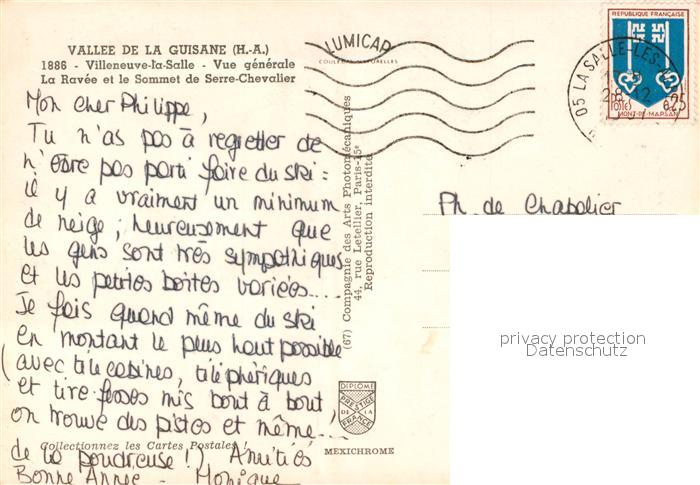 VALLEE DE LA GUISANE (H.-A.)
1886 - Villeneuve-la-Salle - Vue générale
La Ravée et le Sommet de Serre-Chevalier
Mon cher Philippe,
Tu n'as pas à regretter de
n'être pas parti faire du ski :
il y a vraiment un minimum
de neige ; heureusement que
les gens sont très sympathiques
et les petites boîtes variées....
Je fais quand même du ski
en montant le plus haut possible
(avec télécabines, téléphériques
et tire fesses mis bout à bout,
on trouve des pistes et même...
de la poudreuse !) Amitiés
Bonne Année - Monique
Collectionnez les Cartes Postales
LUMICAP
COULEURS NATURELLES
(67) Compagnie des Arts Photomécaniques
44, rue Letellier, Paris-15e
Reproduction interdite
DIPLOME
PRESTIGE
DE LA
FRANCE
MEXICHROME
REPUBLIQUE FRANÇAISE
POSTES
0,25
MONT-DE-MARSAN
05 LA SALLE-LES-
28-12
Ph. de Chabalier
privacy protection
Datenschutz